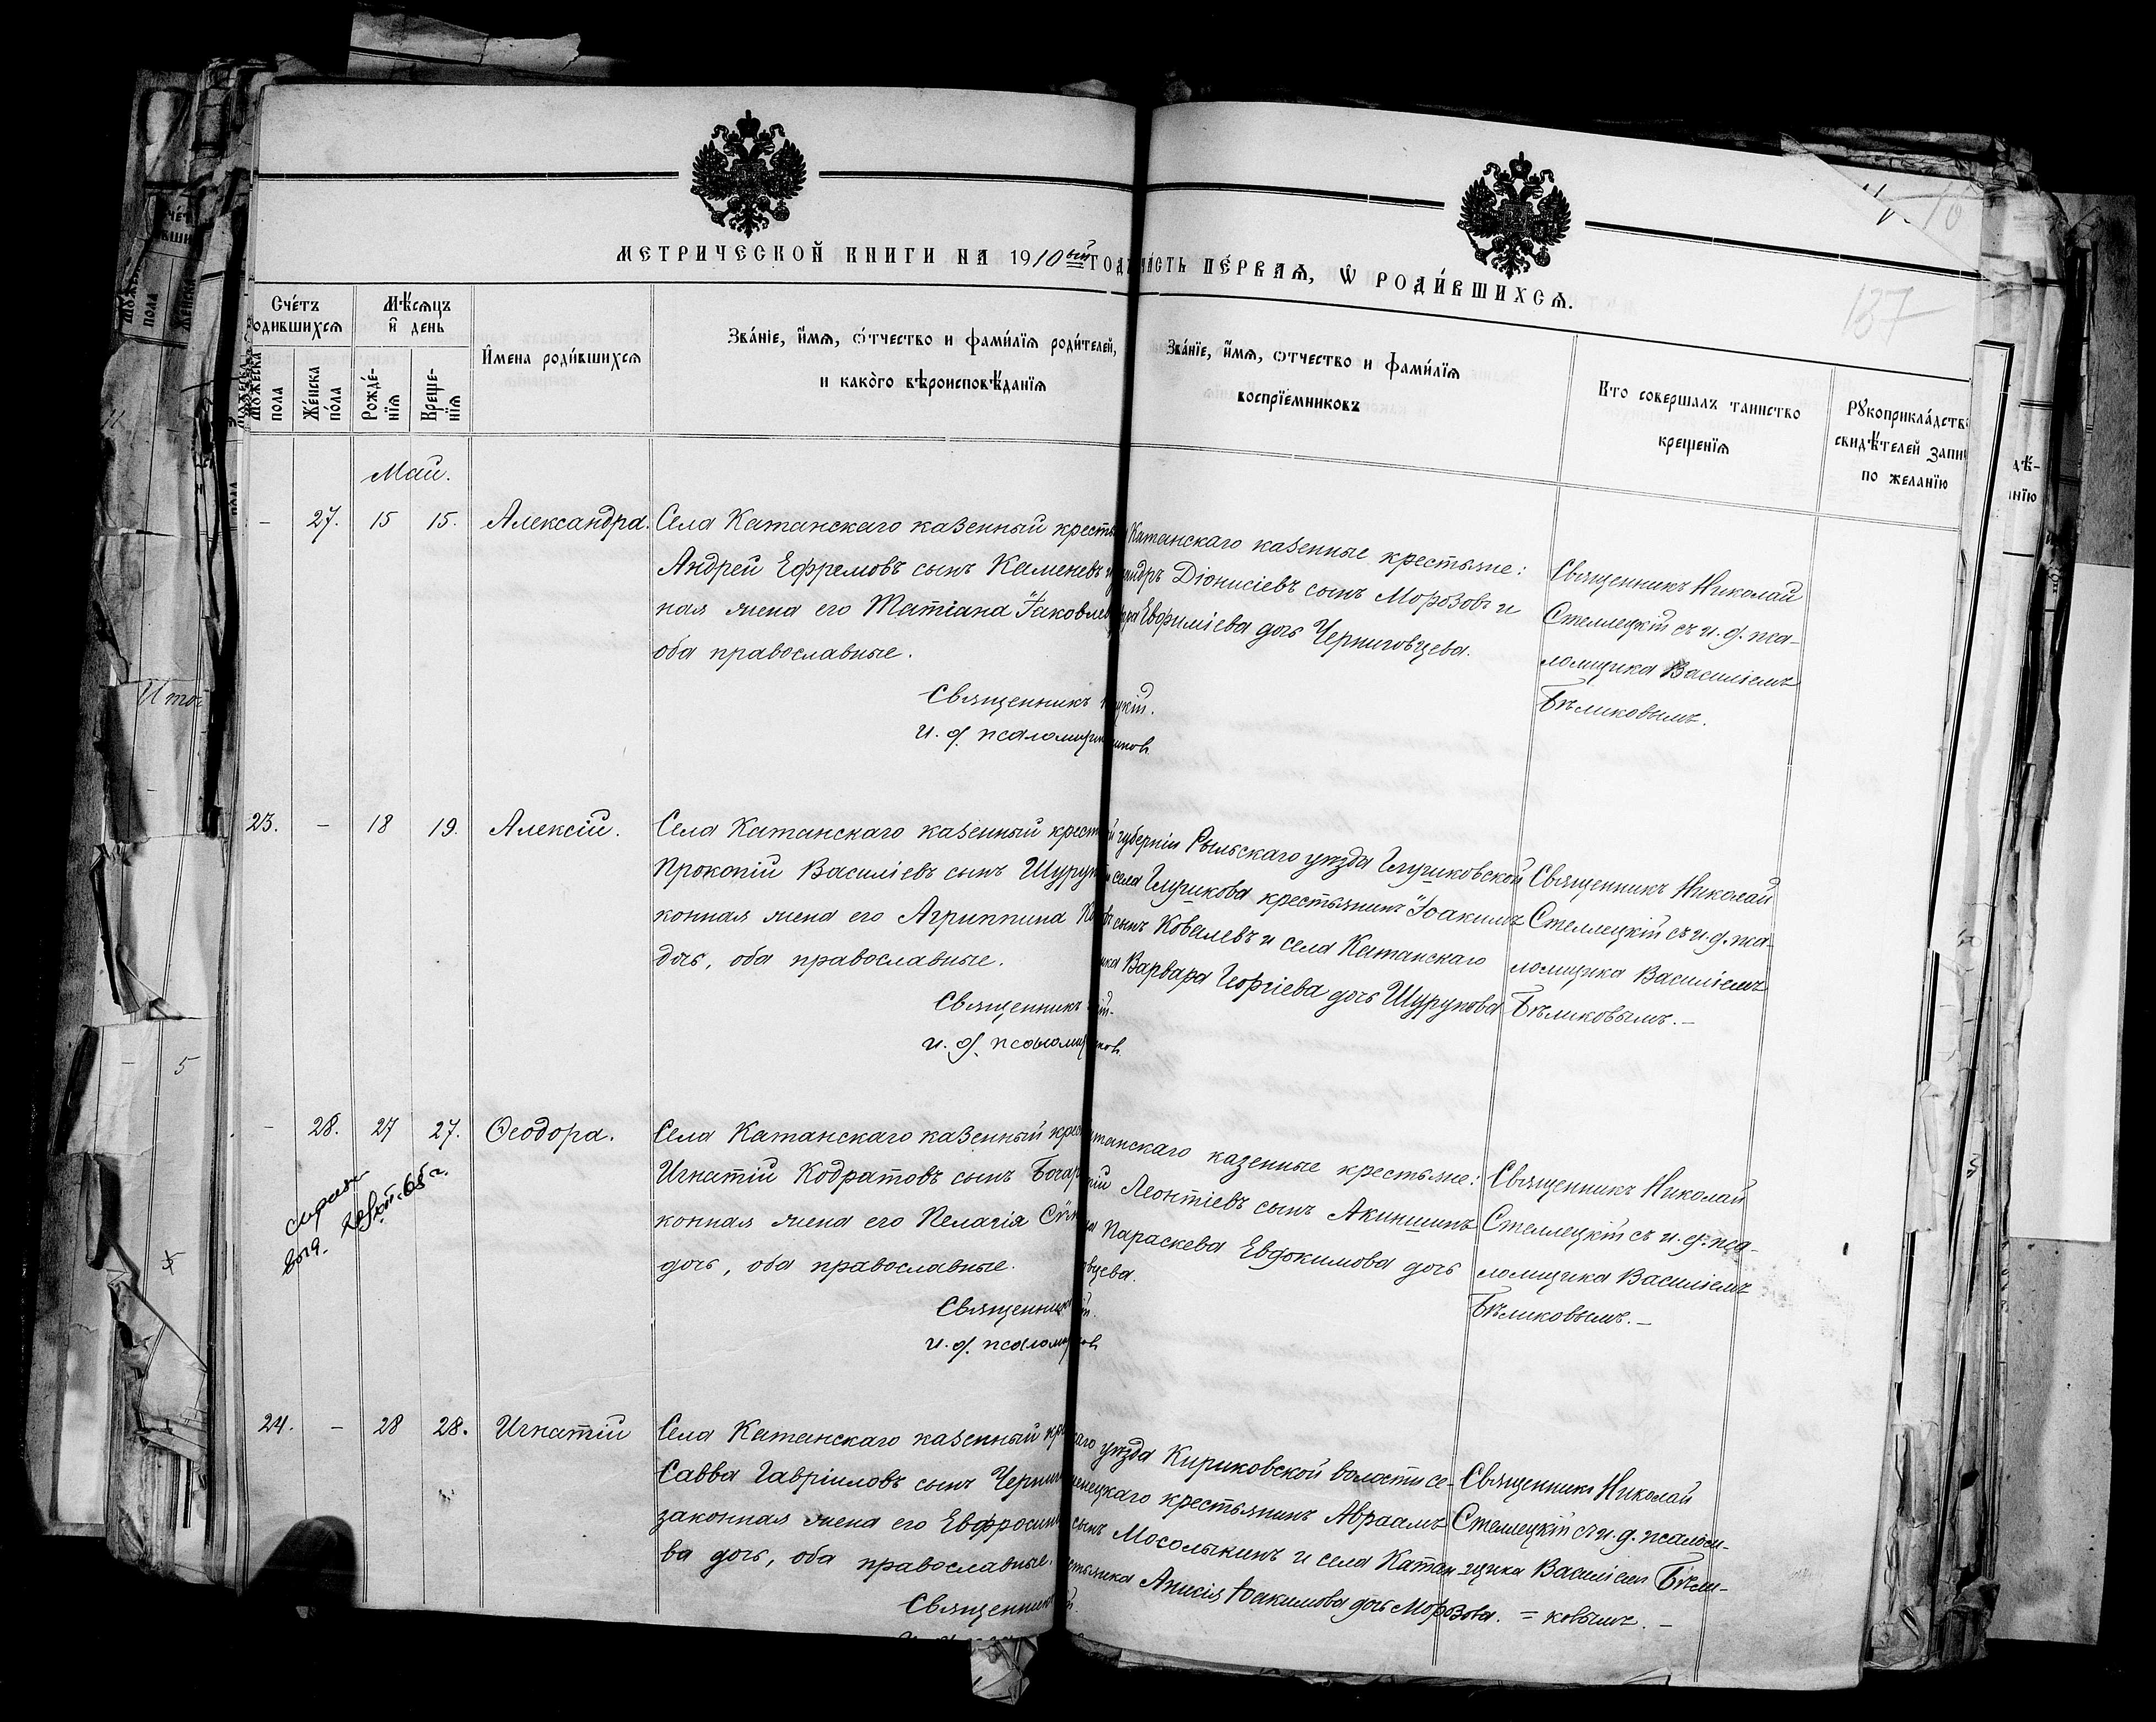 МЕТРИЧЕСКОЙ КНИГИ НА 1910ый ГОДЪ ЧАСТЬ ПЕ́РВАѦ, Ѡ РОДИ́ВШИХСѦ.
187
Сче́тъ
родившихсѧ
Мѣ́сѧцъ
и҆ день
И҆мена роди́вшихсѧ
Зва́нїе, и҆́мѧ, ѻ҆́тчество и фами́лїѧ роди́телей,
и како́гѡ вѣроисповѣ́данїѧ
Зва́нїе, и҆́мѧ, ѻ҆тчество и фами́лїѧ
воспрїемниковъ
Кто совершалъ таинство
крещенїѧ
Рꙋкоприкла́дств
свидѣтелей запи
по желанїю
Мꙋжеска
пола
Же́нска
по́ла
Рожде́-
нїѧ
Креще-
нїѧ
Май.
– 27. 15 15. Александра.
Села Катанскаго казенный кресть
Андрей Ефремовъ сынъ Каменевъ и
ная жена его Татіана Іаковлев
оба православные.
Священникъ
и. д. псаломщи
Катанскаго казенные крестьяне:
андръ Діонисіевъ сынъ Морозовъ и
Евфиміева дочь Черниговцева.
цкій.
иковъ
Священникъ Николай
Стеллецкій съ и. д. пса-
ломщика Василіемъ
Бѣликовымъ.
23. – 18 19. Алексій.
Села Катанскаго казенный крест
Прокопій Василіевъ сынъ Шуруп
конная жена его Агриппина
дочь, оба православные.
Священникъ
и. д. псаломщ
губерніи Рыльскаго уѣзда Глушковской
села Глушкова крестьянинъ Іоакимъ
въ сынъ Ковалевъ и села Катанскаго
нка Варвара Георгіева дочь Шурупова
ковъ
Священникъ Николай
Стеллецкій съ и. д. пса-
ломщика Василіемъ
Бѣликовымъ. –
– 28. 27 27. Ѳеодора.
Села Катанскаго казенный крес
Игнатій Кодратовъ сынъ Бочар
конная жена его Пелагія
дочь, оба православные.
Священник
и. д. псаломщ
танскаго казенные крестьяне:
Леонтіевъ сынъ Акиншинъ
Параскева Евдокимова дочь
вцева.
овъ
Священникъ Николай
Стеллецкій съ и. д. пса-
ломщика Василіемъ
Бѣликовымъ. –
24. – 28 28. Игнатій
Села Катанскаго казенный кр
Савва Гавріиловъ сынъ Черниг
законная жена его Евфросин
ва дочь, оба православные.
Священник
каго уѣзда Кириковской волости се-
нецкаго крестьянинъ Авраамъ
сынъ Мосолыкинъ и села Катан-
стьянка Анисія Іоакимова дочь Морозова.
Священникъ Николай
Стеллецкій съ и. д. псалом-
щика Василіем Бѣли-
= ковымъ. –